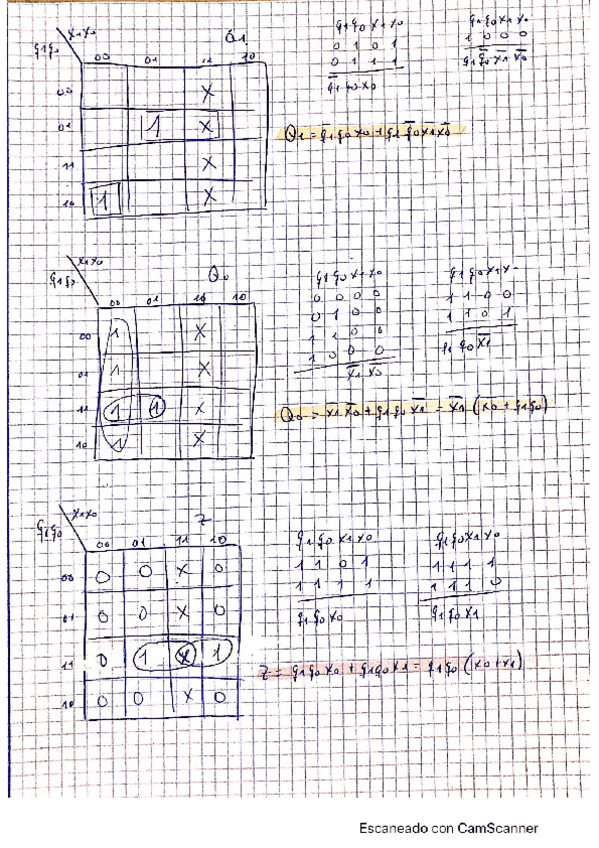 x1x0
q1q0
Q1
00 01 11 10
00 X
01 1 X
11 X
10 1 X
q1 q0 x1 x0
0 1 0 1
0 1 1 1
q̅1 q0 x0
q1 q0 x1 x0
1 0 0 0
q1 q̅0 x̅1 x̅0
Q1 = q̅1 q0 x0 + q1 q̅0 x̅1 x̅0
x1x0
q1q0
Q0
00 01 11 10
00 1 X
01 1 X
11 1 1 X
10 1 X
q1 q0 x1 x0
0 0 0 0
0 1 0 0
1 1 0 0
1 0 0 0
x̅1 x̅0
q1 q0 x1 x0
1 1 0 0
1 1 0 1
q1 q0 x̅1
Q0 = x̅1 x̅0 + q1 q0 x̅1 = x̅1 (x0 + q1q0)
x1x0
q1q0
Z
00 01 11 10
00 0 0 X 0
01 0 0 X 0
11 0 1 X 1
10 0 0 X 0
q1 q0 x1 x0
1 1 0 1
1 1 1 1
q1 q0 x0
q1 q0 x1 x0
1 1 1 1
1 1 1 0
q1 q0 x1
Z = q1q0 x0 + q1q0 x1 = q1q0 (x0 + x1)
Escaneado con CamScanner